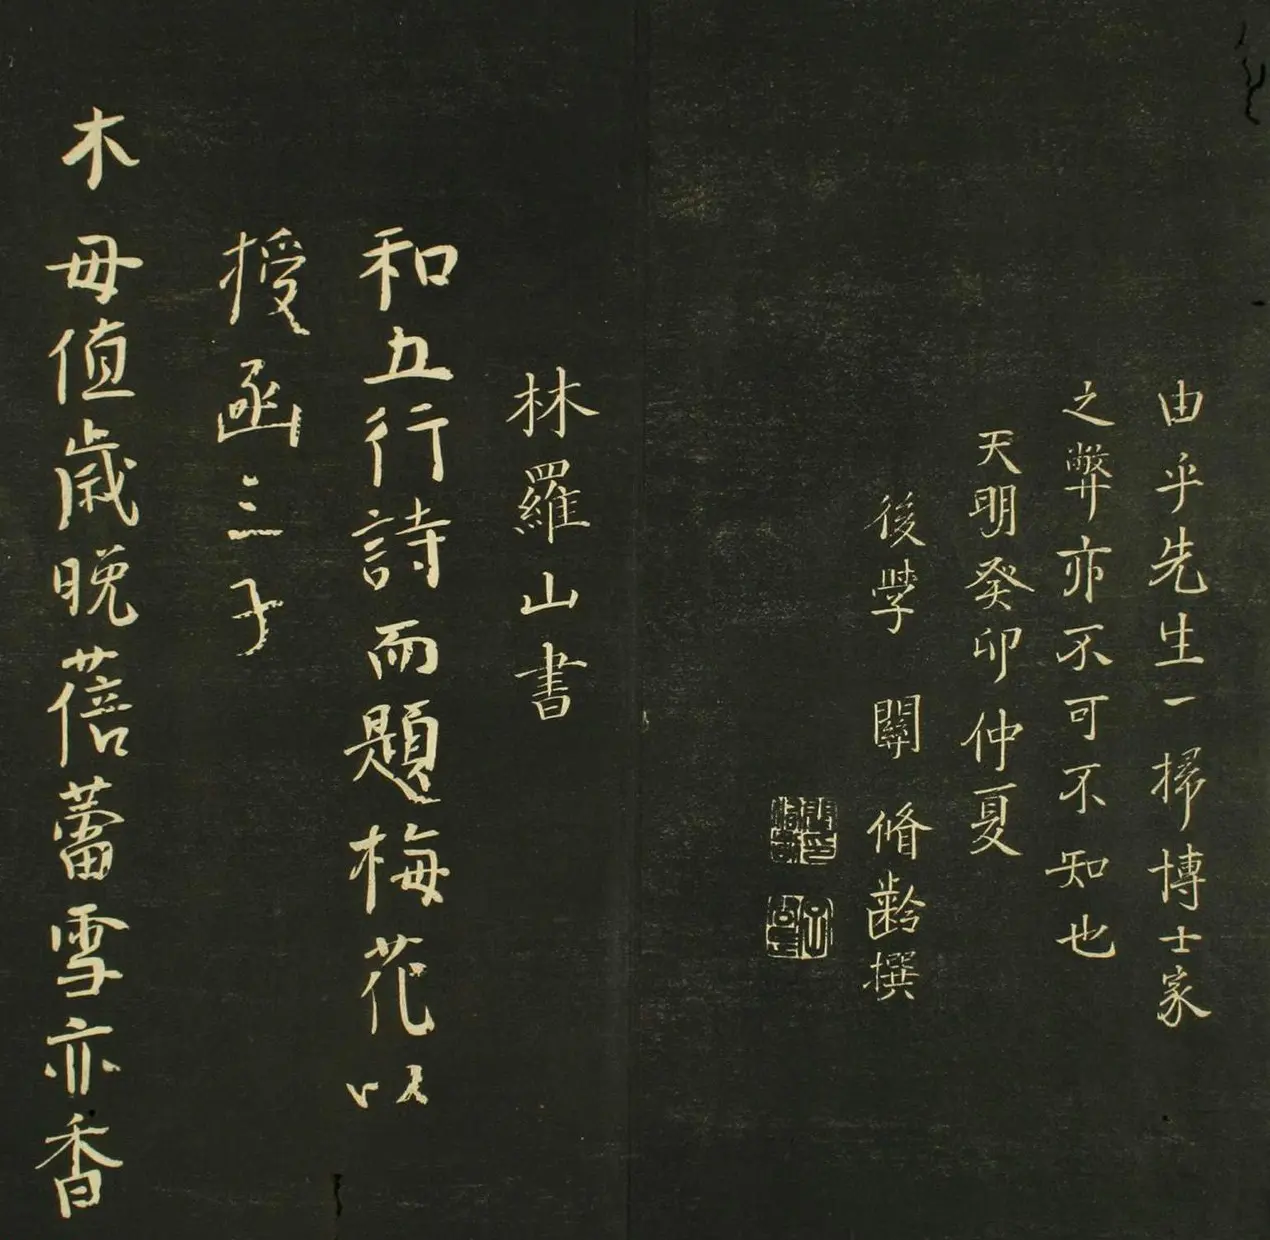 由乎先生一掃博士家
之弊亦不可不知也
天明癸卯仲夏
後學 關 脩齡撰
林羅山書
和五行詩而題梅花以
授函三子
木 母值歲晚蓓蕾雪亦香